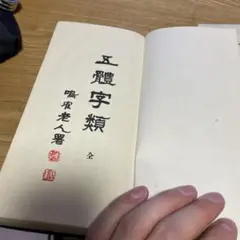 五體字類
全
鳴雀老人署